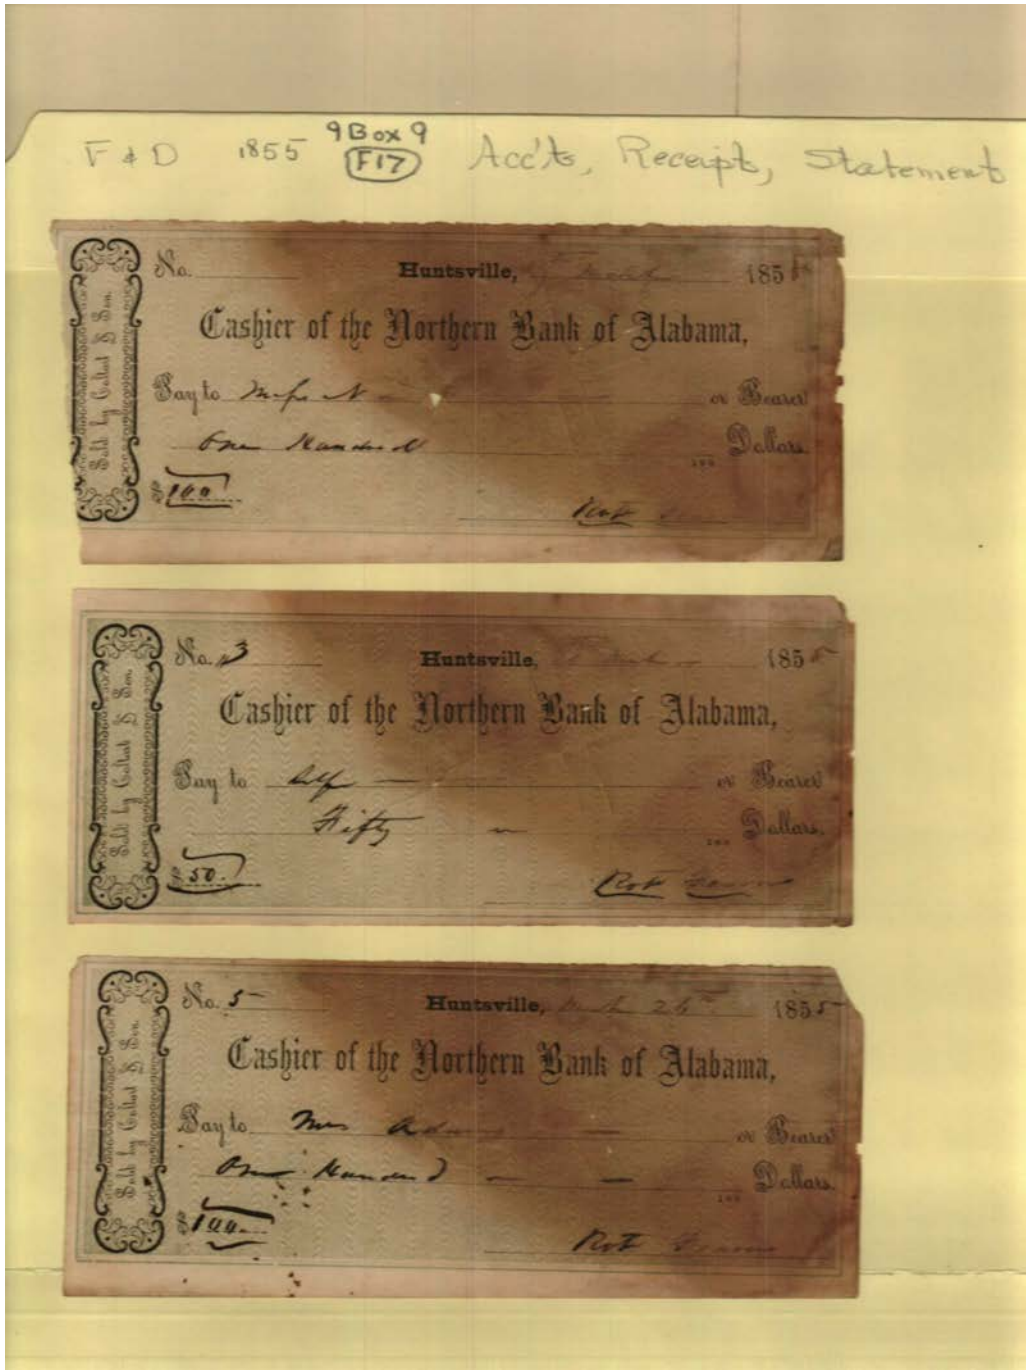 F & D 1855 9Box9 Acc'ts, Receipts, Statement
F17
No. Huntsville, 185
Cashier of the Northern Bank of Alabama,
Pay to or Bearer
One Hundred Dollars.
100
$100.
Sold by Coltart & Son.
No. 3 Huntsville, 1855
Cashier of the Northern Bank of Alabama,
Pay to Self or Bearer
Fifty Dollars.
100
$50.
Sold by Coltart & Son.
No. 5 Huntsville, 26th 1855
Cashier of the Northern Bank of Alabama,
Pay to Mrs or Bearer
One Hundred Dollars.
100
$100
Sold by Coltart & Son.